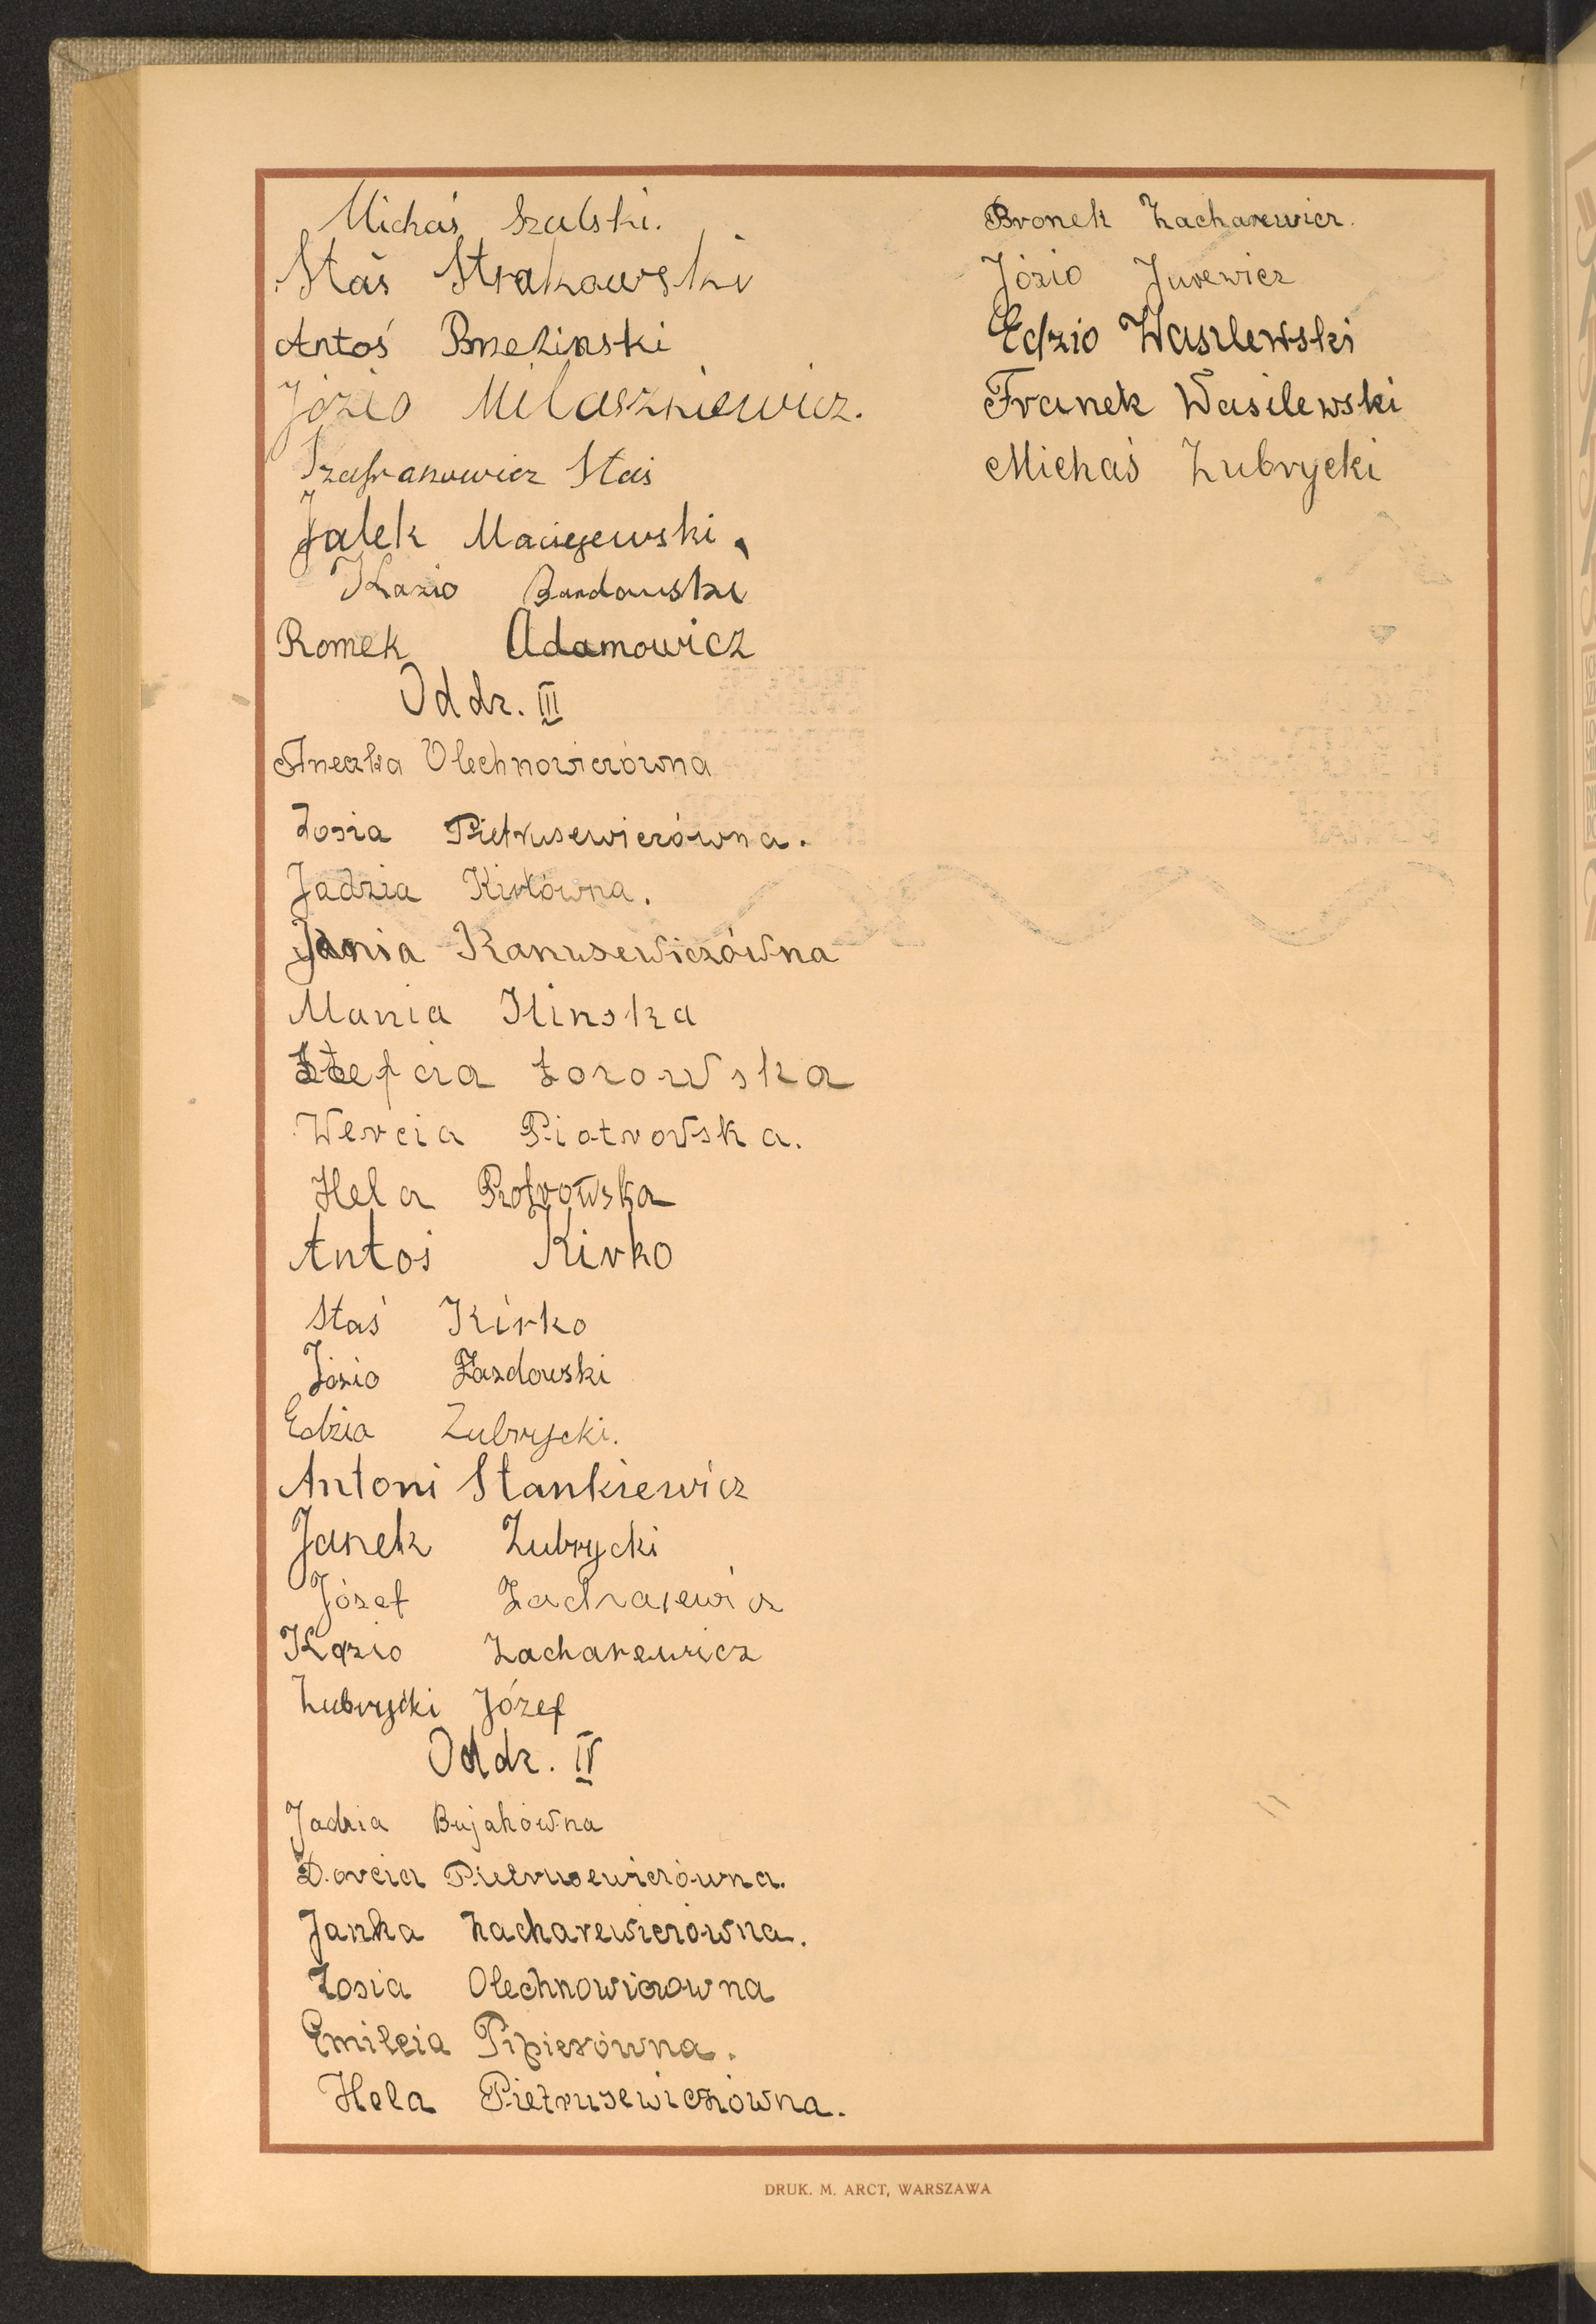 Michaś Szulski.
Staś Strakowski
Antoś Brzezinski
Józio Milaszkiewicz.
Szafranowicz Staś
Jalek Maciejewski.
Kazio Bandowski
Romek Adamowicz
Oddz. III
Aneczka Olechnowiczówna
Zosia Pietrusewiczówna.
Jadzia Kirkówna.
Jania Kanusewiczówna
Mania Ilinska
Stefcia Łozowska
Wercia Piotrowska.
Hela Piotrowska
Antoś Kirko
Staś Kirko
Józio Łazdowski
Edzia Zubrycki.
Antoni Stankiewicz
Janek Zubrycki
Józef Zacharewicz
Kazio Zacharewicz
Zubrycki Józef
Oddz. IV
Jadzia Bujakówna
Dorcia Pietrusewiczówna.
Janka Zacharewiczówna.
Zosia Olechnowiczowna
Emilcia Pipierówna.
Hela Pietrusewiczówna.
Bronek Zacharewicz.
Józio Jurewicz
Edzio Wasilewski
Franek Wasilewski
Michaś Zubrycki
DRUK. M. ARCT, WARSZAWA